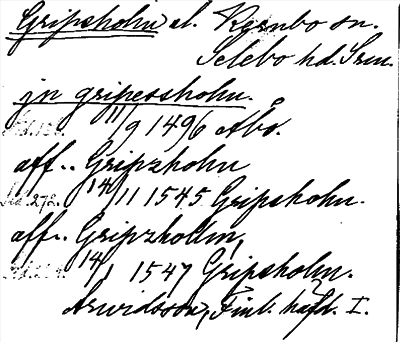 Gripsholm sl. Kernbo sn.
Selebo hd. Srm.
jn gripessholm.
11/9 1496 Åbo.
aff.. Gripzholm
Sid. 272. 14/11 1545 Gripsholm.
aff.. Gripzholm,
14/1 1547 Gripsholm.
Arwidsson, Finl. häfd. I.